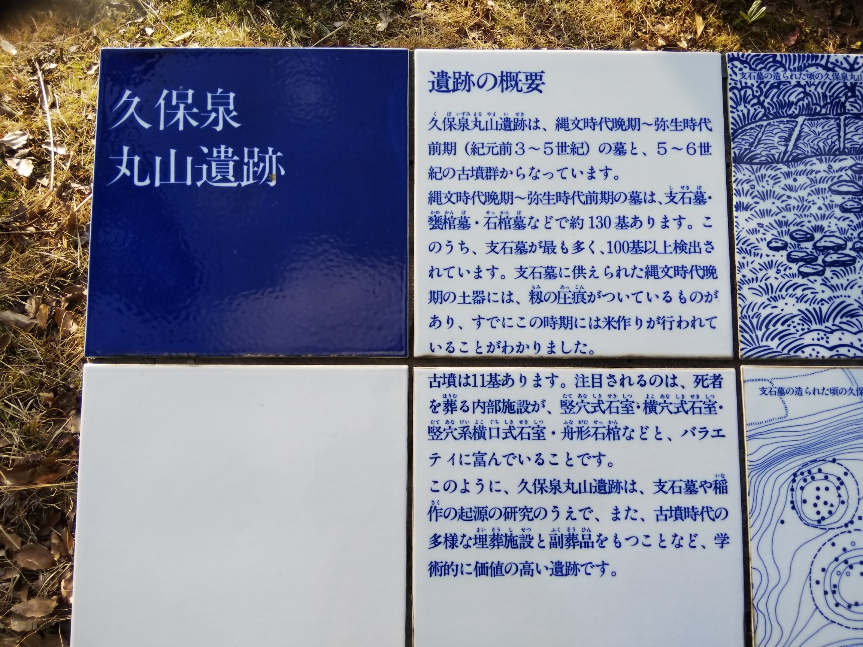 久保泉
丸山遺跡
遺跡の概要
久保泉丸山遺跡は、縄文時代晩期〜弥生時代
前期（紀元前３〜５世紀）の墓と、５〜６世
紀の古墳群からなっています。
縄文時代晩期〜弥生時代前期の墓は、支石墓・
甕棺墓・石棺墓などで約130基あります。こ
のうち、支石墓が最も多く、100基以上検出さ
れています。支石墓に供えられた縄文時代晩
期の土器には、籾の圧痕がついているものが
あり、すでにこの時期には米作りが行われて
いることがわかりました。
古墳は11基あります。注目されるのは、死者
を葬る内部施設が、竪穴式石室・横穴式石室・
竪穴系横口式石室・舟形石棺などと、バラエ
ティに富んでいることです。
このように、久保泉丸山遺跡は、支石墓や稲
作の起源の研究のうえで、また、古墳時代の
多様な埋葬施設と副葬品をもつことなど、学
術的に価値の高い遺跡です。
支石墓の造られた頃の久保泉丸
支石墓の造られた頃の久保